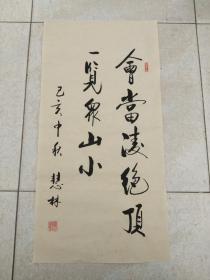 會當凌絶頂
一覽眾山小
己亥中秋 慧林